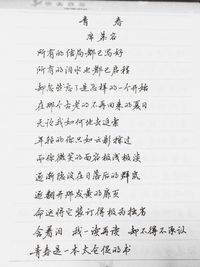 青春
席慕容
所有的结局都已写好
所有的泪水也都已启程
却忽然忘了是怎样的一个开始
在那个古老的不再回来的夏日
无论我如何地去追索
年轻的你只如云影掠过
而你微笑的面容极浅极淡
逐渐隐没在日落后的群岚
遂翻开那发黄的扉页
命运将它装订得极为拙劣
含着泪 我一读再读 却不得不承认
青春是一本太仓促的书